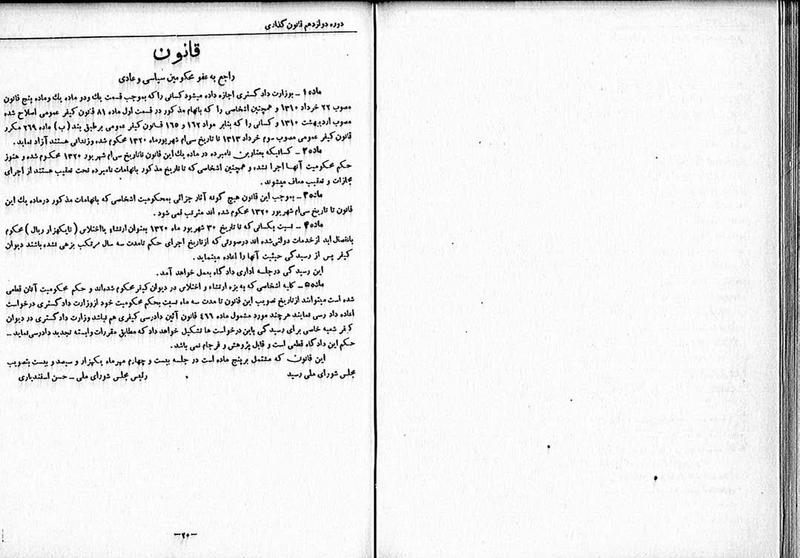 دوره دوازدهم قانون گذاری
قانون
راجع به عفو محکومین سیاسی و عادی
ماده۱ ـ بوزارت دادگستری اجازه داده میشود کسانی را که بموجب قسمت یك ودو ماده یك وماده پنج قانون
مصوب ۲۲ خرداد ۱۳۱۰ و همچنین اشخاصی را که باتهام مذکور در قسمت اول ماده ۸۱ قانون کیفر عمومی اصلاح شده
مصوب اردیبهشت ۱۳۱۰ و کسانی را که بنابر مواد ۱۶۲ و ۱۶۵ قانون کیفر عمومی برطبق بند (ب) ماده ۲۶۹ مکرر
قانون کیفر عمومی مصوب سوم خرداد ۱۳۱۳ تا تاریخ سی‌ام شهریورماه ۱۳۲۰ محکوم شده وزندانی هستند آزاد نماید.
ماده۲ ـ کسانیکه بعناوین نامبرده در ماده یك این قانون تاتاریخ سی‌ام شهریور ۱۳۲۰ محکوم شده و هنوز
حکم محکومیت آنها اجرا نشده و همچنین اشخاصی که تا تاریخ مذکور باتهامات نامبرده تحت تعقیب هستند از اجرای
مجازات و تعقیب معاف میشوند.
ماده۳ ـ بموجب این قانون هیچ گونه آثار جزائی بمحکومیت اشخاصی که باتهامات مذکور درماده یك این
قانون تا تاریخ سی‌ام شهریور ۱۳۲۰ محکوم شده اند مترتب نمی شود.
ماده۴ ـ نسبت بکسانی که تا تاریخ ۳۰ شهریور ماه ۱۳۲۰ بعنوان ارتشاء یااختلاس (تایکهزار ریال) محکوم
بانفصال ابد ازخدمات دولتی شده اند درصورتی که ازتاریخ اجرای حکم تامدت سه سال مرتکب بزهی نشده باشند دیوان
کیفر پس از رسیدگی حیثیت آنها را اعاده مینماید.
این رسیدگی درجلسه اداری دادگاه بعمل خواهد آمد.
ماده۵ ـ کلیه اشخاصی که به بزه ارتشاء و اختلاس در دیوان کیفر محکوم شده‌اند و حکم محکومیت آنان قطعی
شده است میتوانند ازتاریخ تصویب این قانون تا مدت سه ماه نسبت بحکم محکومیت خود ازوزارت دادگستری درخواست
اعاده داد رسی نمایند هرچند مورد مشمول ماده ۲۶۶ قانون آئین دادرسی کیفری هم نباشد وزارت دادگستری در دیوان
کیفر شعبه خاصی برای رسیدگی باین درخواست ها تشکیل خواهد داد که مطابق مقررات وابسته تجدید دادرسی نماید ـ
حکم این دادگاه قطعی است و قابل پژوهش و فرجام نمی باشد.
این قانون که مشتمل برپنج ماده است در جلسه بیست و چهارم مهرماه یکهزار و سیصد و بیست بتصویب
مجلس شورای ملی رسید
رئیس مجلس شورای ملی ـ حسن اسفندیاری
ـ۲۰ـ